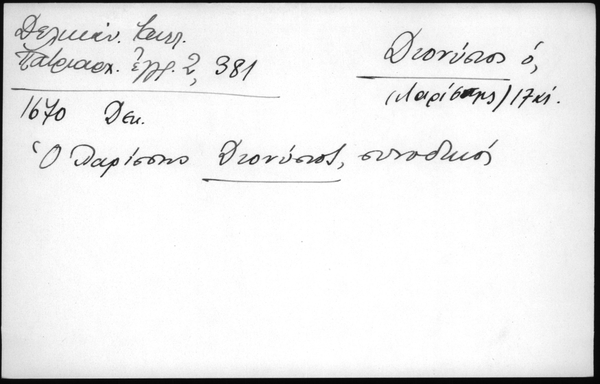 Δελικάν. Καλλ.
Πατριαρχ. ἔγγρ. 2, 381
Διονύσιος ὁ,
(Λαρίσης) 17 αἰ.
1670 Δεκ.
Ὁ Λαρίσσης Διονύσιος, συνοδικός